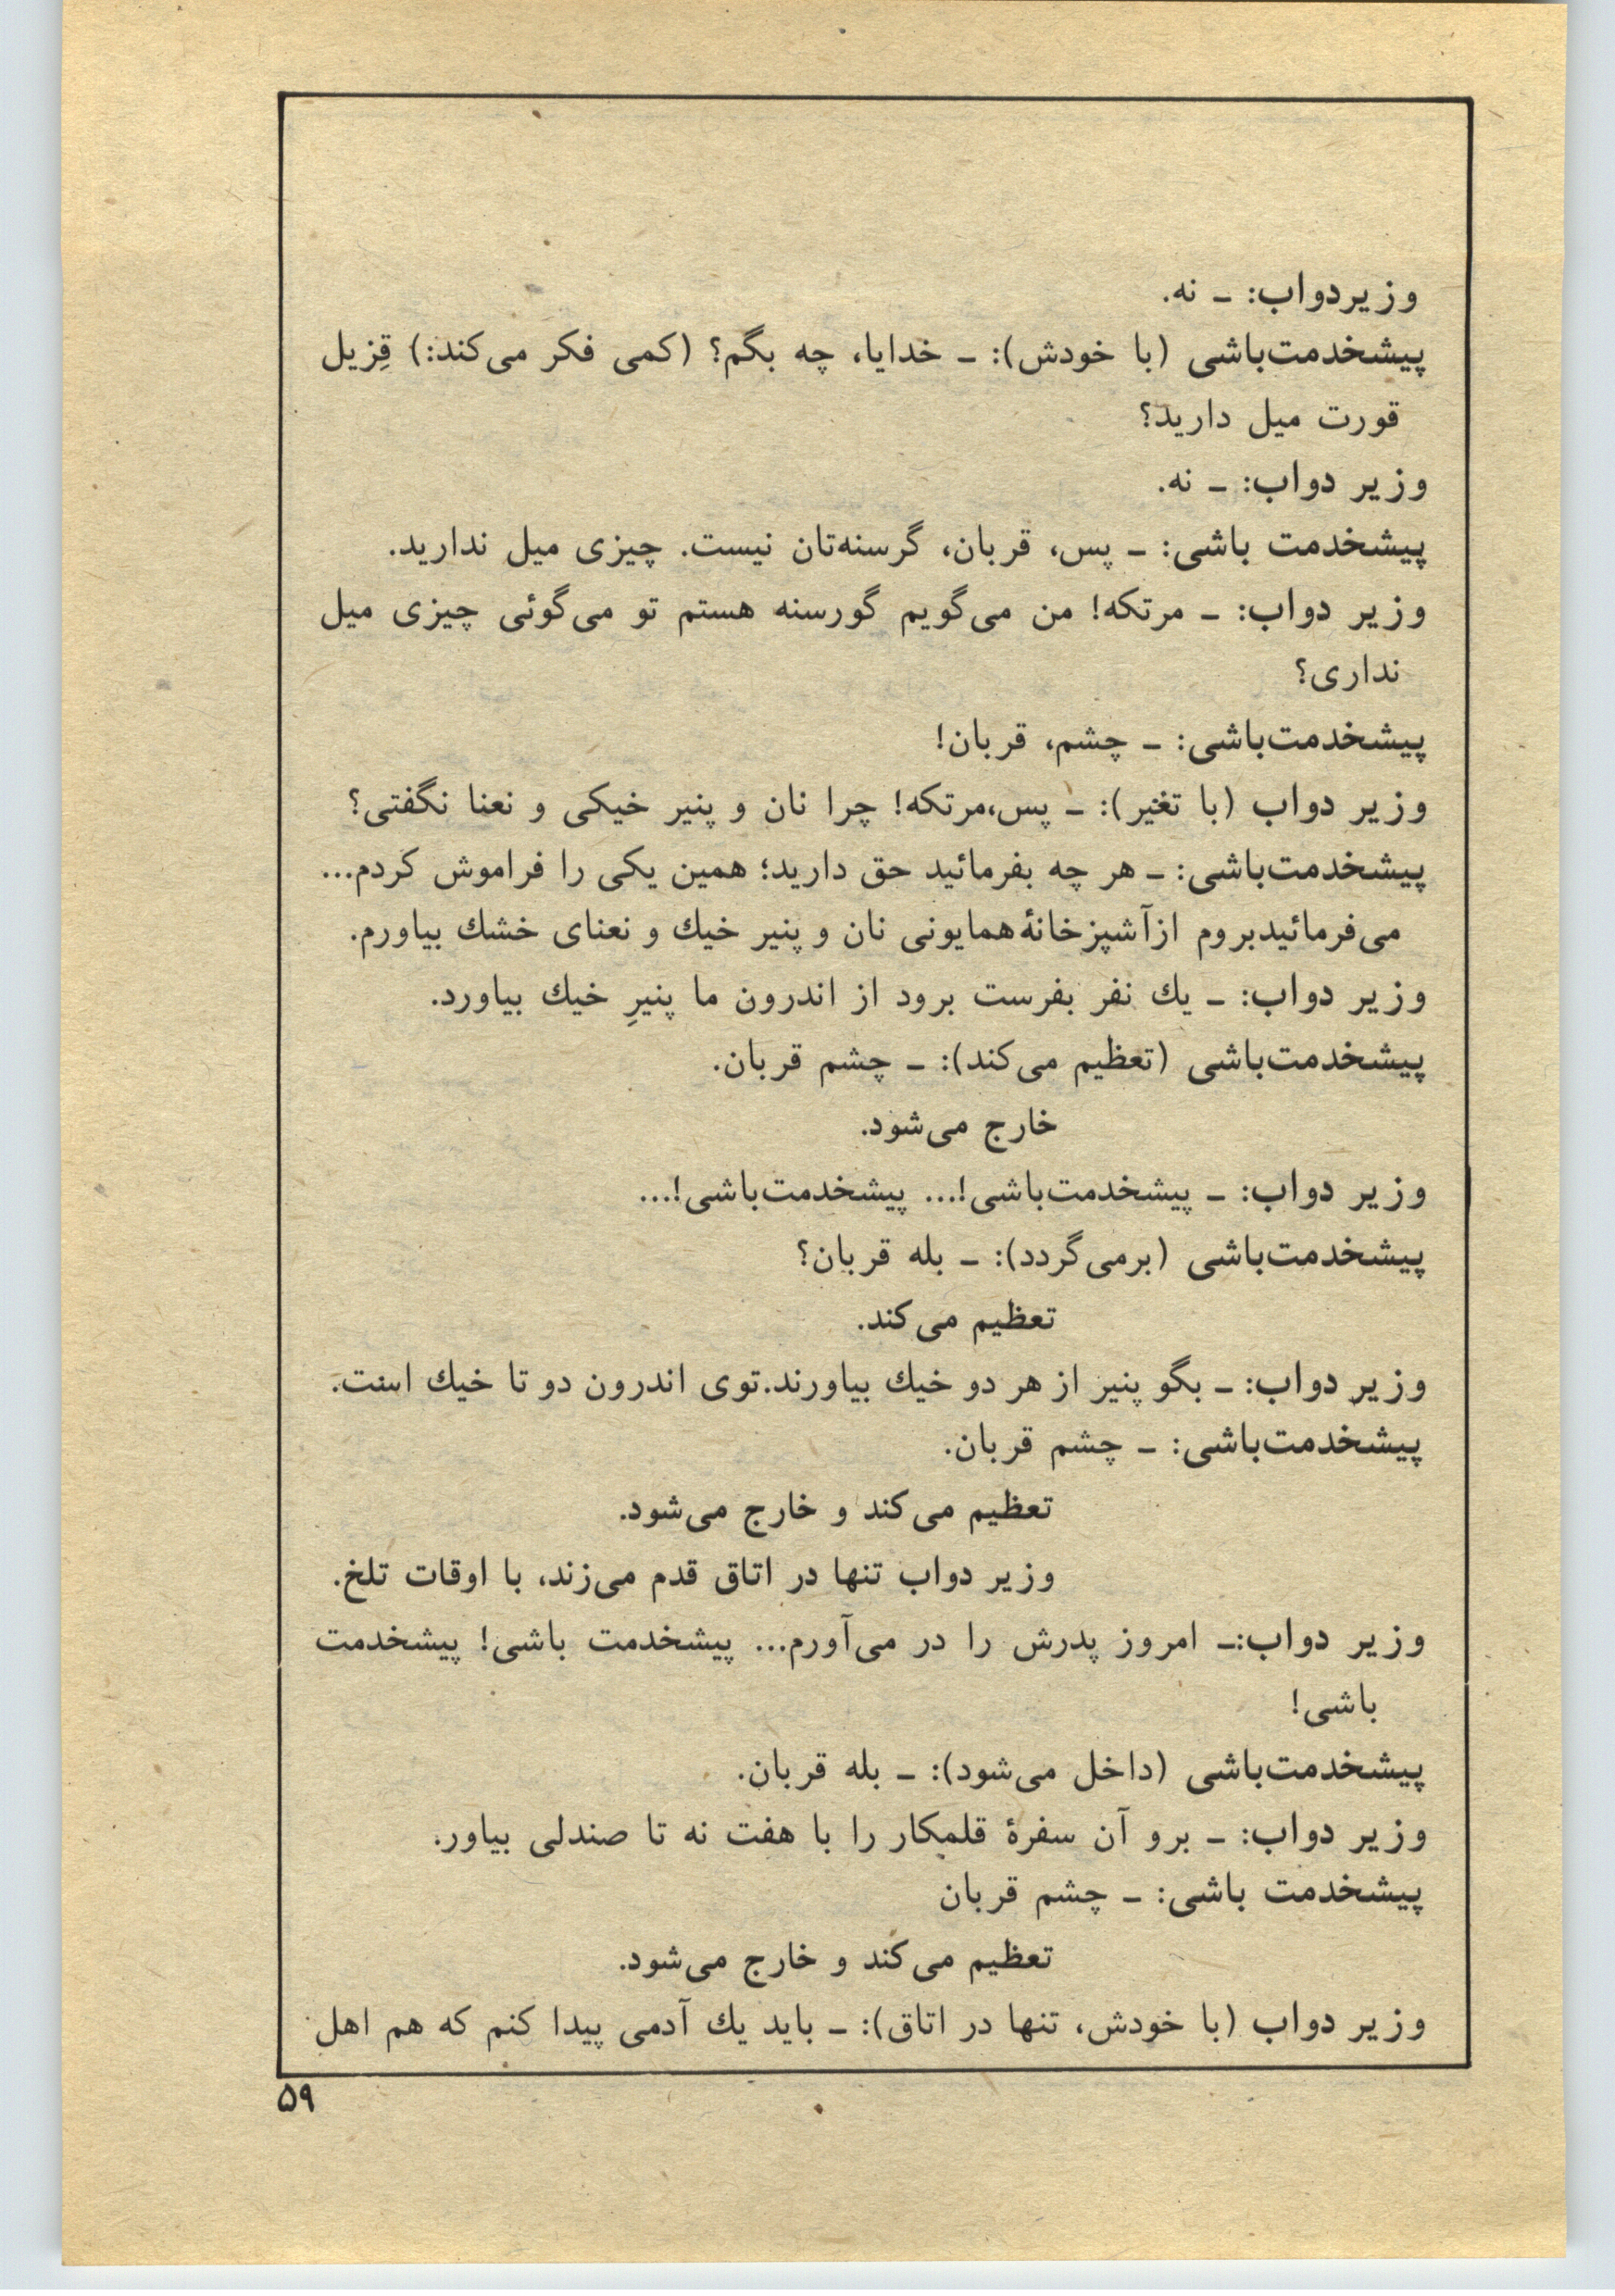 وزیردواب: ـ نه.
پیشخدمت‌باشی (با خودش): ـ خدایا، چه بگم؟ (کمی فکر می‌کند:) قِزیل
قورت میل دارید؟
وزیر دواب: ـ نه.
پیشخدمت باشی: ـ پس، قربان، گرسنه‌تان نیست. چیزی میل ندارید.
وزیر دواب: ـ مرتکه! من می‌گویم گورسنه هستم تو می‌گوئی چیزی میل
نداری؟
پیشخدمت‌باشی: ـ چشم، قربان!
وزیر دواب (با تغیر): ـ پس،مرتکه! چرا نان و پنیر خیکی و نعنا نگفتی؟
پیشخدمت‌باشی: ـ هر چه بفرمائید حق دارید؛ همین یکی را فراموش کردم...
می‌فرمائیدبروم ازآشپزخانهٔ‌همایونی نان و پنیر خیك و نعنای خشك بیاورم.
وزیر دواب: ـ یك نفر بفرست برود از اندرون ما پنیرِ خیك بیاورد.
پیشخدمت‌باشی (تعظیم می‌کند): ـ چشم قربان.
خارج می‌شود.
وزیر دواب: ـ پیشخدمت‌باشی!... پیشخدمت‌باشی!...
پیشخدمت‌باشی (برمی‌گردد): ـ بله قربان؟
تعظیم می‌کند.
وزیر دواب: ـ بگو پنیر از هر دو خیك بیاورند.توی اندرون دو تا خیك است.
پیشخدمت‌باشی: ـ چشم قربان.
تعظیم می‌کند و خارج می‌شود.
وزیر دواب تنها در اتاق قدم می‌زند، با اوقات تلخ.
وزیر دواب:ـ امروز پدرش را در می‌آورم... پیشخدمت باشی! پیشخدمت
باشی!
پیشخدمت‌باشی (داخل می‌شود): ـ بله قربان.
وزیر دواب: ـ برو آن سفرهٔ قلمکار را با هفت نه تا صندلی بیاور.
پیشخدمت باشی: ـ چشم قربان
تعظیم می‌کند و خارج می‌شود.
وزیر دواب (با خودش، تنها در اتاق): ـ باید یك آدمی پیدا کنم که هم اهل
۵۹